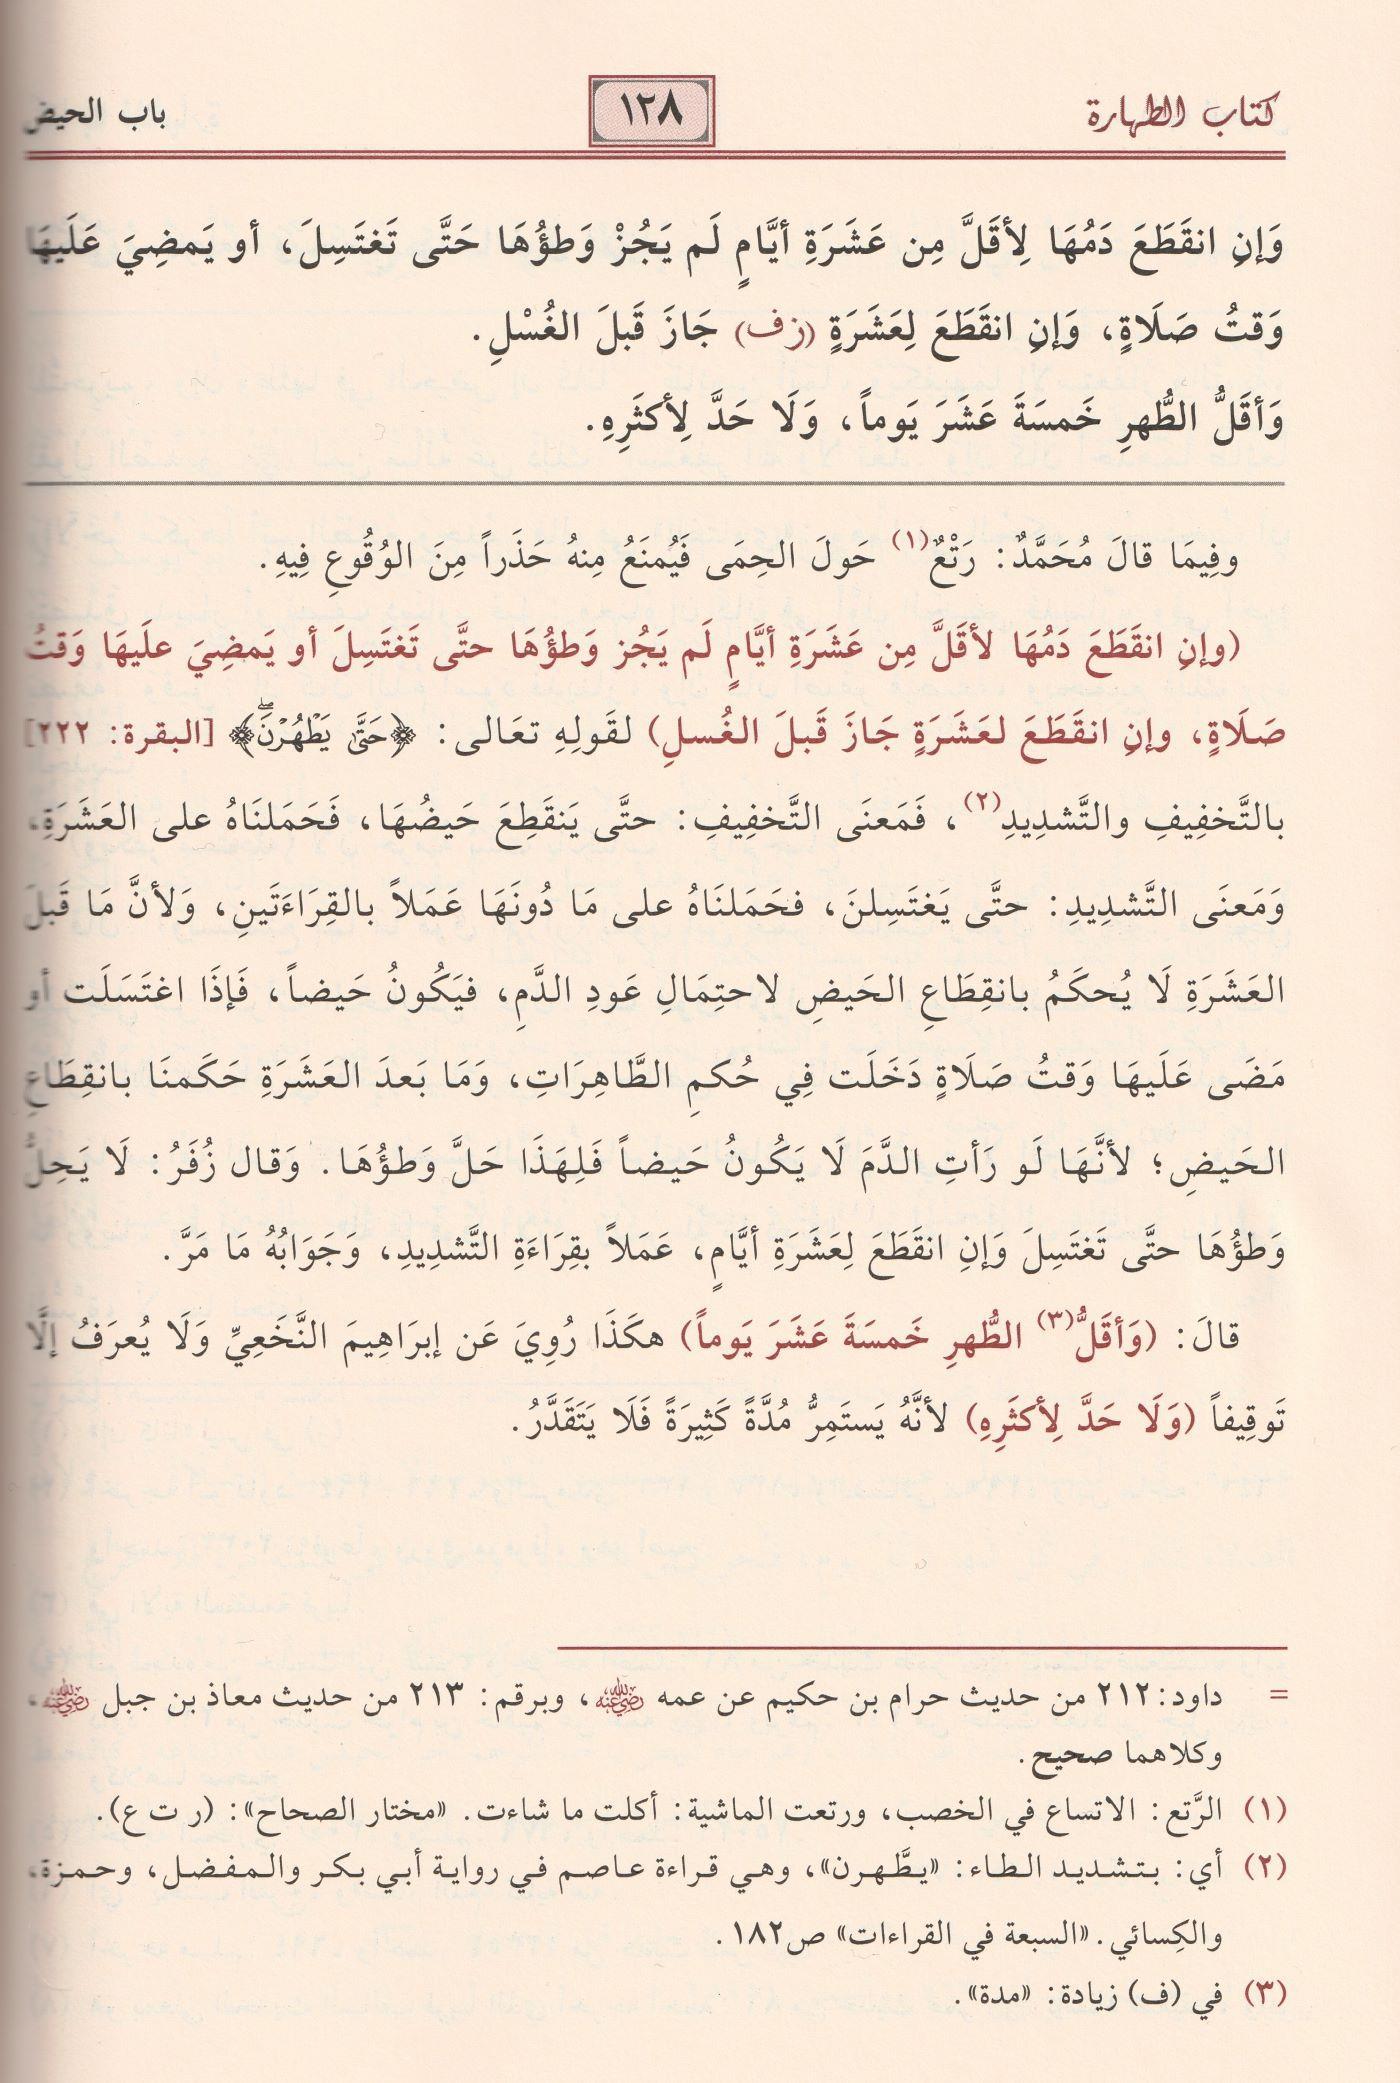 كتاب الطهارة ١٢٨ باب الحيض
وَإنِ انقَطَعَ دَمُهَا لِأقَلَّ مِن عَشَرَةِ أيَّامٍ لَم يَجُزْ وَطؤُهَا حَتَّى تَغتَسِلَ، أو يَمضِيَ عَلَيهَا
وَقتُ صَلَاةٍ، وَإنِ انقَطَعَ لِعَشَرَةٍ (زف) جَازَ قَبلَ الغُسْلِ.
وَأقَلُّ الطُّهرِ خَمسَةَ عَشَرَ يَوماً، وَلَا حَدَّ لِأكثَرِهِ.
وفِيمَا قالَ مُحَمَّدٌ: رَتْعٌ(١) حَولَ الحِمَى فَيُمنَعُ مِنهُ حَذَراً مِنَ الوُقُوعِ فِيهِ.
(وإنِ انقَطَعَ دَمُهَا لأقَلَّ مِن عَشَرَةِ أيَّامٍ لَم يَجُز وَطؤُهَا حتَّى تَغتَسِلَ أو يَمضِيَ علَيهَا وَقتُ
صَلَاةٍ، وإنِ انقَطَعَ لعَشَرَةٍ جَازَ قَبلَ الغُسلِ) لقَولِهِ تعَالى: ﴿حَتَّىٰ يَطْهُرْنَۖ﴾ [البقرة: ٢٢٢]
بالتَّخفِيفِ والتَّشدِيدِ(٢)، فَمَعنَى التَّخفِيفِ: حتَّى يَنقَطِعَ حَيضُهَا، فَحَمَلنَاهُ على العَشَرَةِ،
وَمَعنَى التَّشدِيدِ: حتَّى يَغتَسِلنَ، فحَمَلنَاهُ على مَا دُونَهَا عَمَلاً بالقِرَاءَتَينِ، وَلأنَّ مَا قَبلَ
العَشَرَةِ لَا يُحكَمُ بانقِطَاعِ الحَيضِ لاحتِمَالِ عَودِ الدَّمِ، فيَكُونُ حَيضاً، فَإذَا اغتَسَلَت أو
مَضَى عَلَيهَا وَقتُ صَلَاةٍ دَخَلَت فِي حُكمِ الطَّاهِرَاتِ، وَمَا بَعدَ العَشَرَةِ حَكَمنَا بانقِطَاعِ
الحَيضِ؛ لأنَّهَا لَو رَأتِ الدَّمَ لَا يَكُونُ حَيضاً فَلِهَذَا حَلَّ وَطؤُهَا. وَقال زُفَرُ: لَا يَحِلُّ
وَطؤُهَا حتَّى تَغتَسِلَ وَإنِ انقَطَعَ لِعَشَرَةِ أيَّامٍ، عَمَلاً بقِرَاءَةِ التَّشدِيدِ، وَجَوَابُهُ مَا مَرَّ.
قالَ: (وَأقَلُّ(٣) الطُّهرِ خَمسَةَ عَشَرَ يَوماً) هكَذَا رُوِيَ عَن إبرَاهِيمَ النَّخَعِيِّ وَلَا يُعرَفُ إلَّا
تَوقِيفاً (وَلَا حَدَّ لِأكثَرِهِ) لأنَّهُ يَستَمِرُّ مُدَّةً كَثِيرَةً فَلَا يَتَقَدَّرُ.
= داود: ٢١٢ من حديث حرام بن حكيم عن عمه رضي الله عنه، وبرقم: ٢١٣ من حديث معاذ بن جبل رضي الله عنه،
وكلاهما صحيح.
(١) الرَّتع: الاتساع في الخصب، ورتعت الماشية: أكلت ما شاءت. «مختار الصحاح»: (ر ت ع).
(٢) أي: بتشديد الطاء: «يطَّهرن»، وهي قراءة عاصم في رواية أبي بكر والمفضل، وحمزة،
والكِسائي. «السبعة في القراءات» ص١٨٢.
(٣) في (ف) زيادة: «مدة».